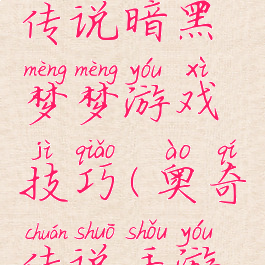 传说暗黑
mèng mèng yóu xì
梦梦游戏
jì qiǎo ào qí
技巧(奥奇
chuán shuō shǒu yóu
传说手游